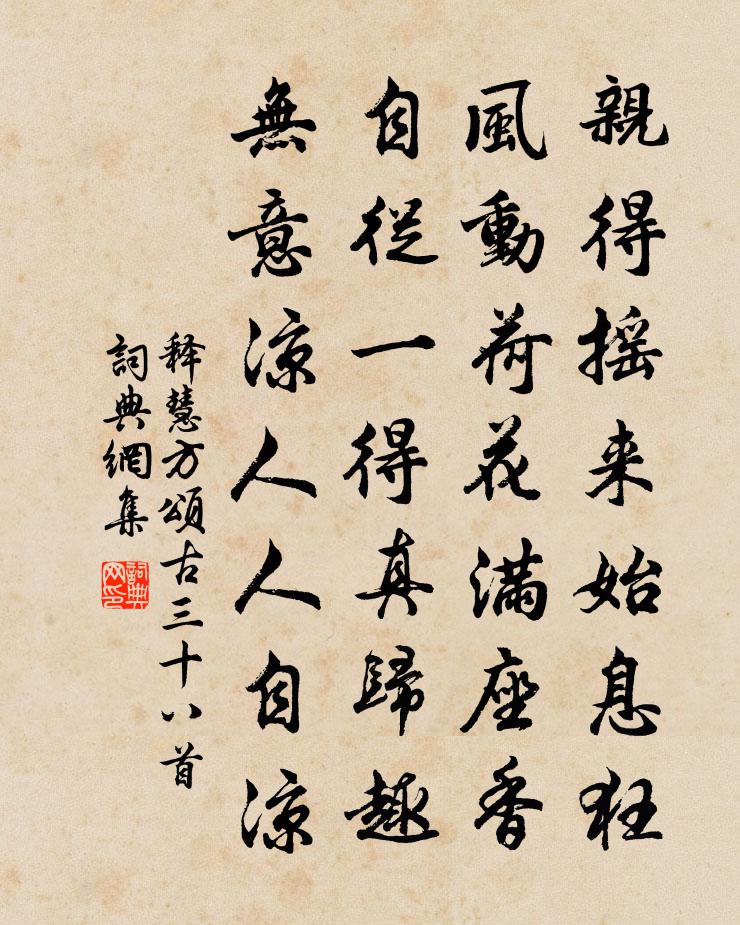 親得摇来始息狂
風動荷花滿座香
自從一得真歸趣
無意涼人人自涼
释慧方頌古三十八首
詞典網集
詞典网印